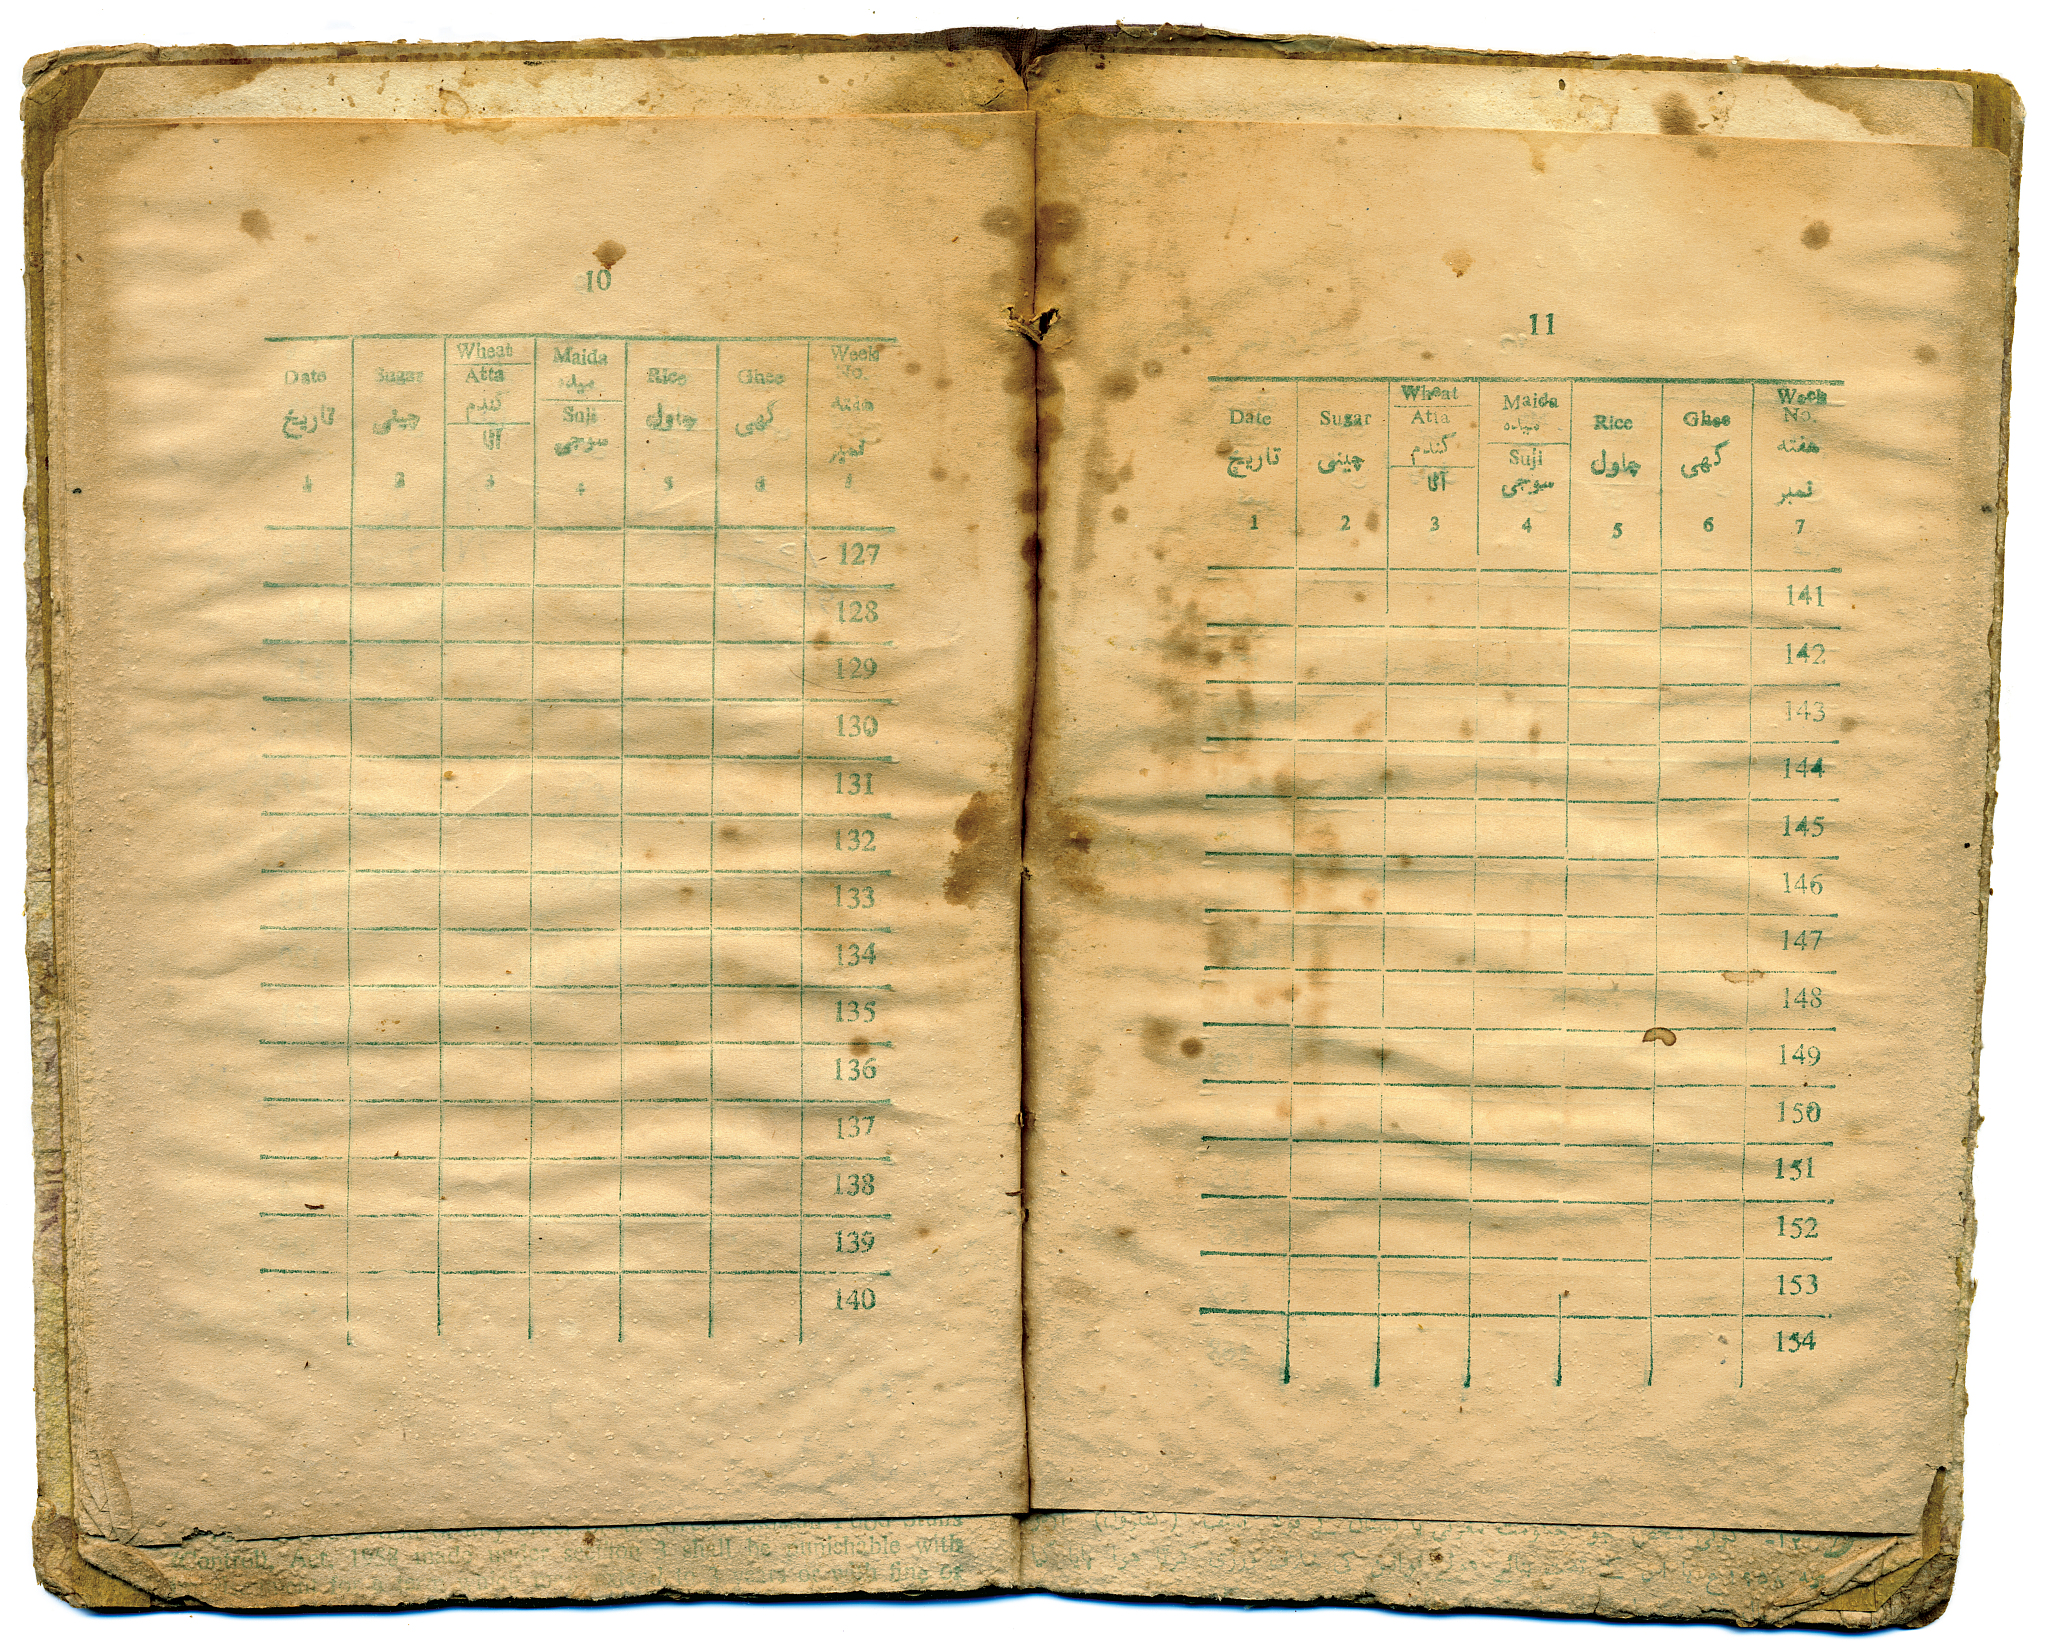 10
Date Sugar Wheat Maida Rice Ghee Week No.
Atta
تاریخ چینی گندم میده چاول گھی هفته نمبر
Suji
آٹا سوجی
1 2 3 4 5 6
127
128
129
130
131
132
133
134
135
136
137
138
139
140
11
Date Sugar Wheat Maida Rice Ghee Week No.
Atta
تاریخ چینی گندم میده چاول گھی هفته نمبر
Suji
آٹا سوجی
1 2 3 4 5 6 7
141
142
143
144
145
146
147
148
149
150
151
152
153
154
made under section 3 shall be punishable with
fine of